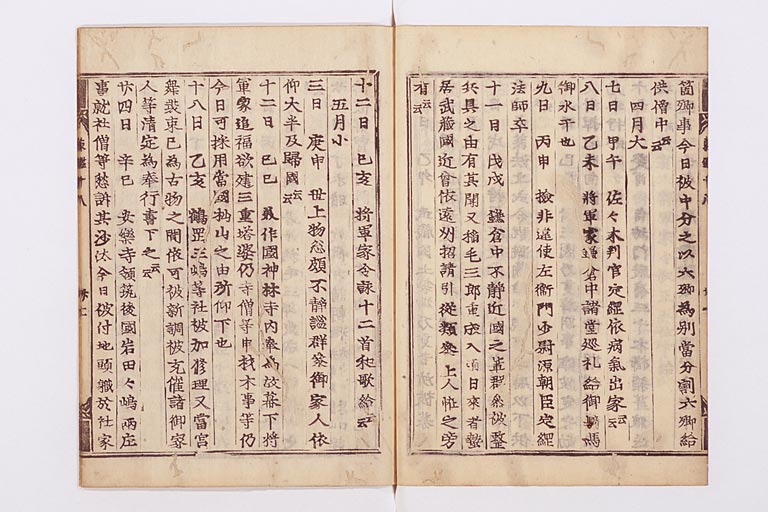 箇郷事今日被中分之以六郷為別當分割六郷給
供僧中云云
四月大
七日 甲午 佐々木判官定經依病氣出家云云
八日 乙未 將軍家鎌倉中諸堂巡礼給御騎馬
御水干也
九日 丙申 檢非違使左衞門少尉源朝臣定經
法師卒
十一日 戊戌 鎌倉中不靜近國之輩群參被整
兵具之由有其聞又稻毛三郎重成入道日來者蟄
居武藏國近會依遠州招請引從類參上人怪之旁
有云云
十二日 己亥 將軍家令詠十二首和歌給云云
五月小
三日 庚申 世上物忩頗不靜謐群參御家人依
仰大半及歸國云云
十二日 己巳 美作國神林寺内奉為故幕下將
軍家追福欲建三重塔婆仍寺僧等申材木事等仍
今日可採用當國杣山之由所仰下也
十八日 乙亥 鶴罡三嶋等社被加修理又當宮
舞裝束已為古物之間依可被新調被充催諸御家
人等清定為奉行書下之云云
廿四日 辛巳 安樂寺領筑後國岩田々嶋兩庄
事就社僧等愁訴其沙汰今日被付地頭職於社家